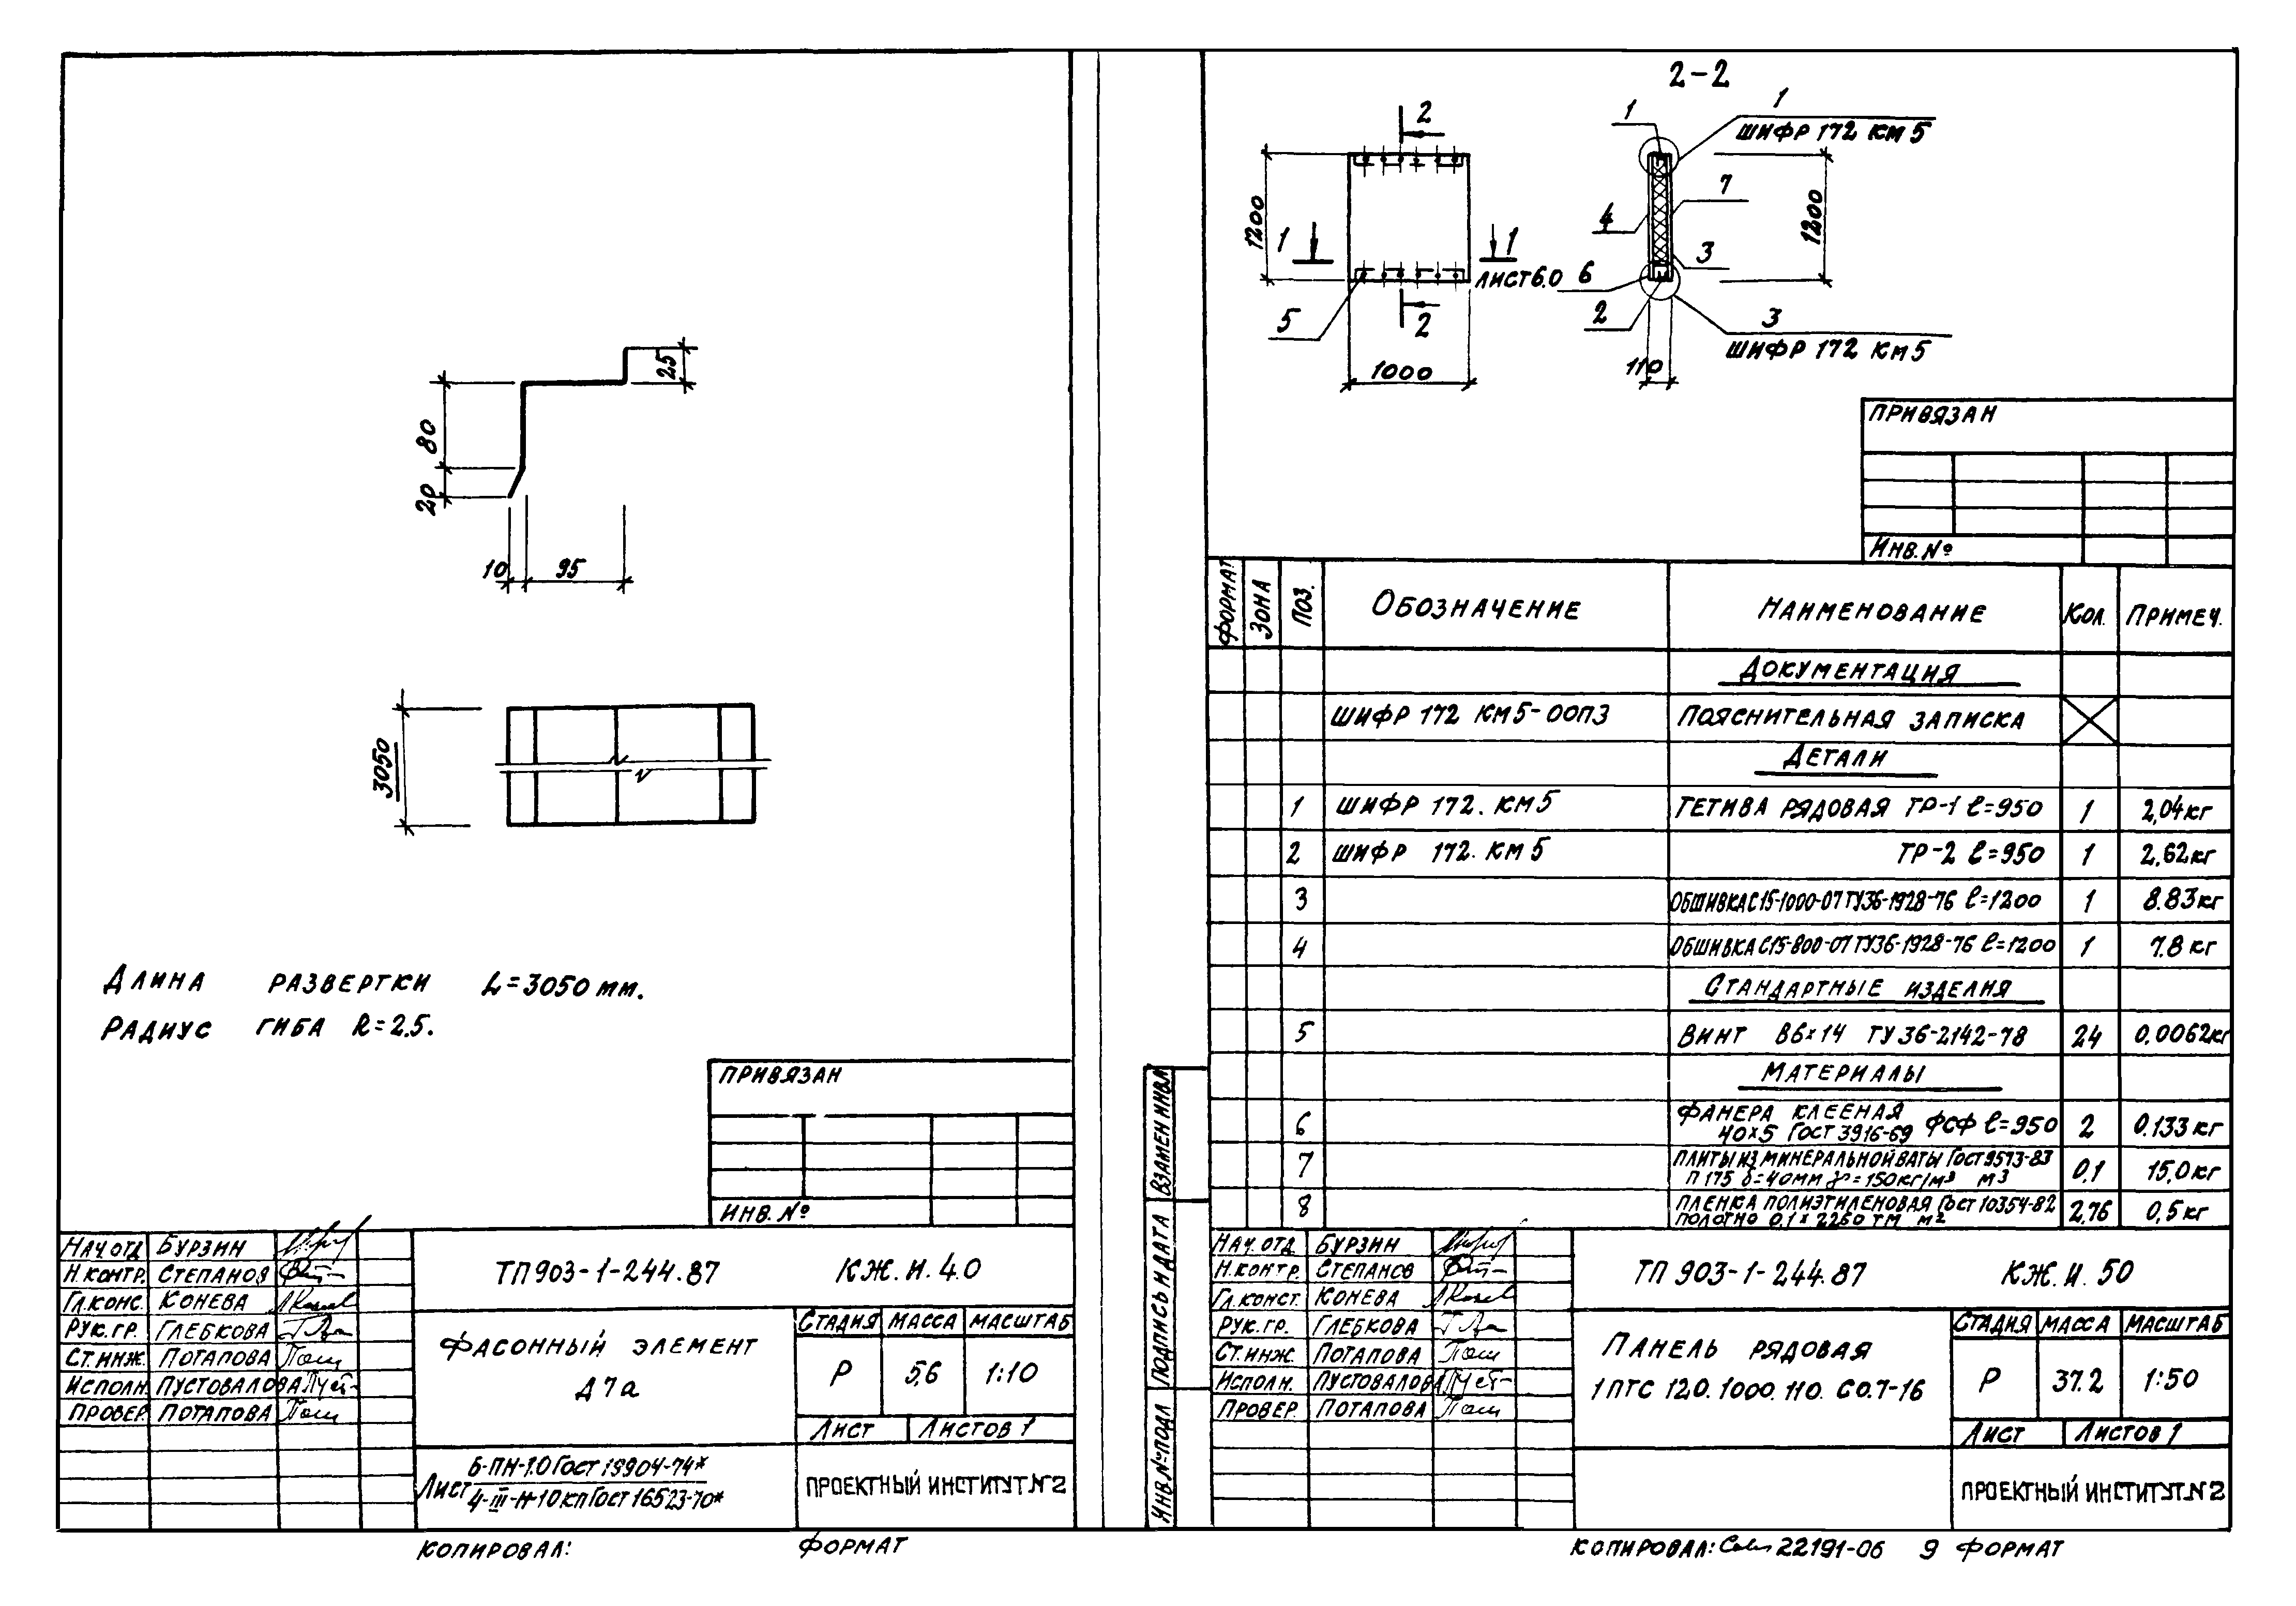 25
80
20
10
95
3050
Длина развертки L=3050 мм.
Радиус гиба R=2,5.
Привязан
Инв. №
Нач.отд Бурзин
Н.контр. Степанов
Гл.конс. Конева
Рук.гр. Глебкова
Ст.инж. Потапова
Исполн. Пустовалова
Провер. Потапова
ТП 903-1-244.87 КЖ.И.4.0
Фасонный элемент
Д7а
Стадия Масса Масштаб
Р 5,6 1:10
Лист Листов 1
Лист Б-ПН-1.0 Гост 19904-74*
4-III-Н-10кп Гост 16523-70*
Проектный институт №2
Копировал: Формат
2-2
2
1 1
2
1200
1000
5
Лист 6.0
1
1
шифр 172 КМ5
7
4
3
6
2
3
шифр 172 КМ5
1200
110
Привязан
Инв. №
Формат Зона Поз. Обозначение Наименование Кол. Примеч.
Документация
шифр 172 КМ5-00ПЗ Пояснительная записка
Детали
1 шифр 172. КМ5 Тетива рядовая ТР-1 ℓ=950 1 2,04кг
2 шифр 172. КМ5 ТР-2 ℓ=950 1 2,62кг
3 Обшивка С15-1000-07 ТУ36-1928-76 ℓ=1200 1 8.83кг
4 Обшивка С15-800-07 ТУ36-1928-76 ℓ=1200 1 7.8 кг
Стандартные изделия
5 Винт В6×14 ТУ 36-2142-78 24 0.0062кг
Материалы
6 Фанера клееная
40×5 Гост 3916-69 ФСФ ℓ=950 2 0.133 кг
7 Плиты из минеральной ваты Гост 9573-83
П 175 δ=40мм γ=150кг/м³ м3 0,1 15,0кг
8 Пленка полиэтиленовая Гост 10354-82
полотно 0,1×2260 тм м2 2,76 0,5 кг
Взамен инв.№
Подпись и дата
Инв.№ подл
Нач. отд Бурзин
Н.контр. Степанов
Гл.конст. Конева
Рук.гр. Глебкова
Ст.инж. Потапова
Исполн. Пустовалова
Провер. Потапова
ТП 903-1-244.87 КЖ.И.50
Панель рядовая
1ПТС 120.1000.110. С0.7-16
Стадия Масса Масштаб
Р 37.2 1:50
Лист Листов 1
Проектный институт №2
Копировал: 22191-06 9 Формат